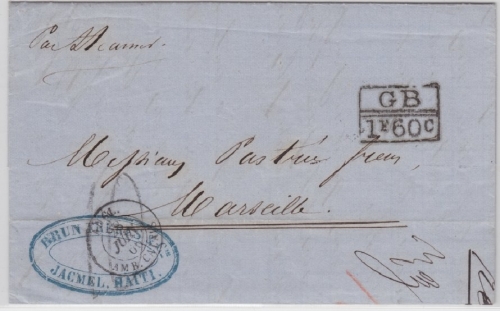 Par Steamer
GB
1F60C
Messieurs Pastré frères
Marseille
BRUN FRÈRES
JACMEL. HAITI.